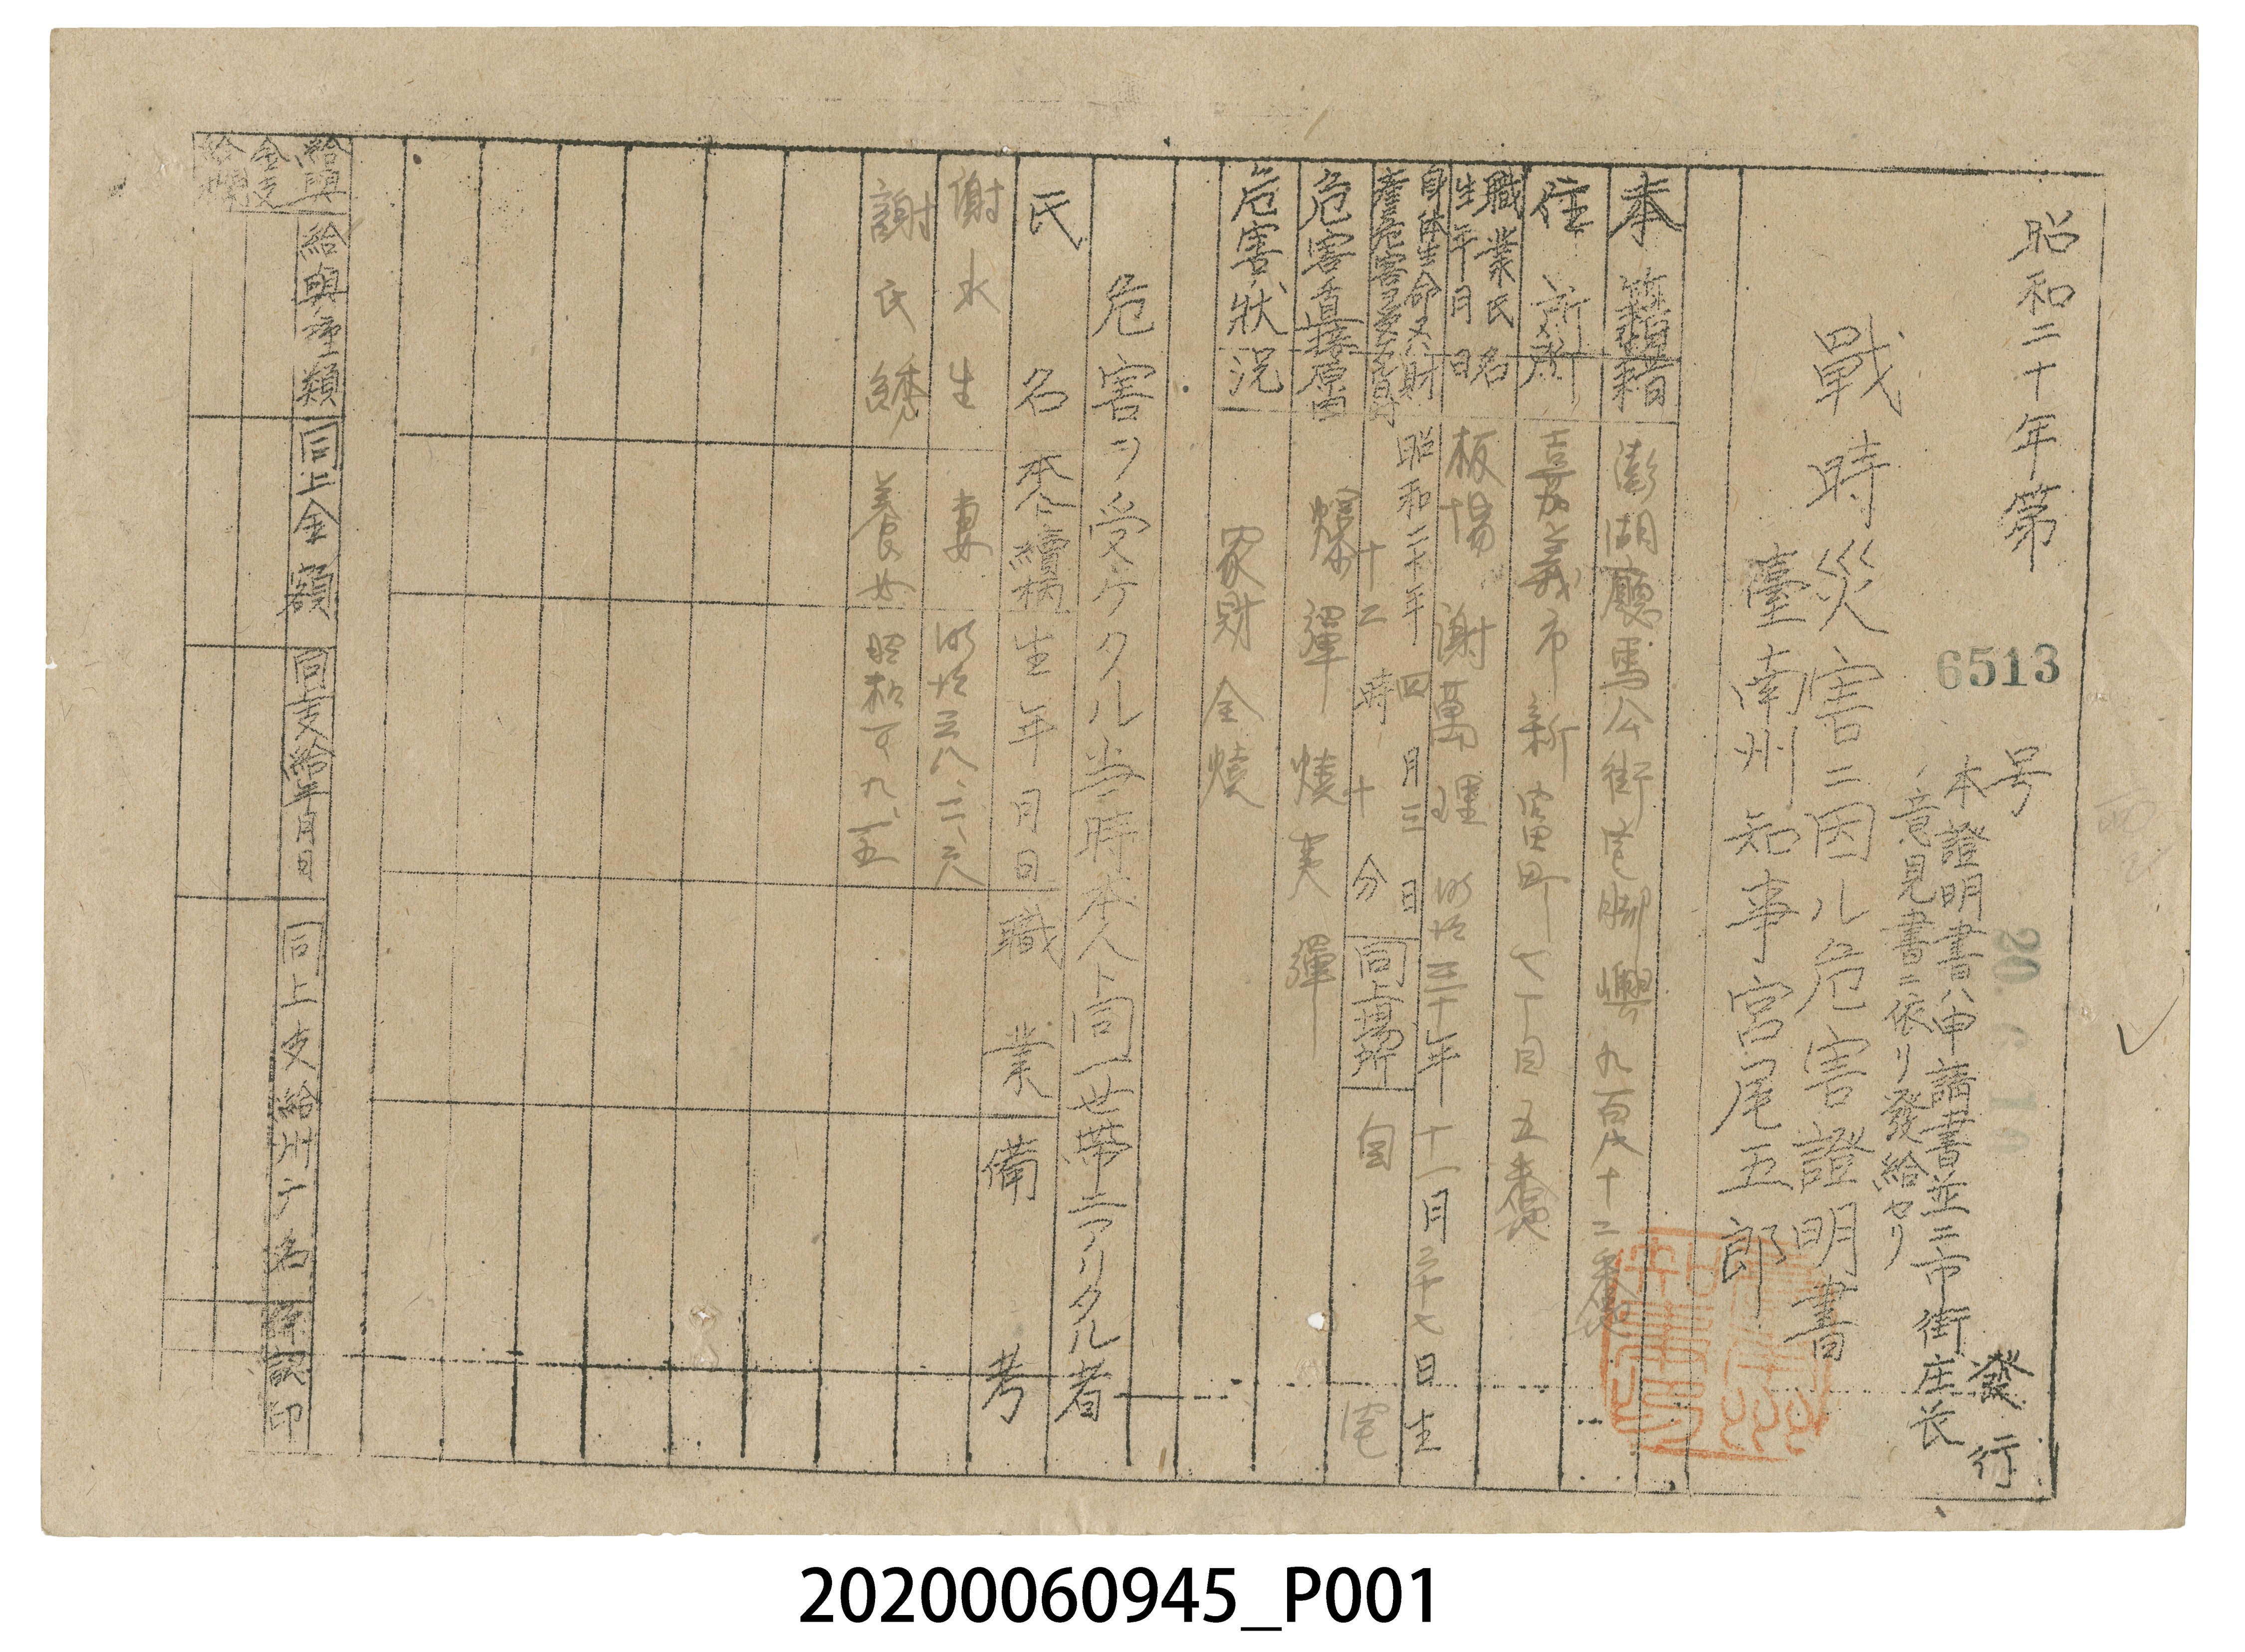 昭和二十年第 6513 号 發行
20. 6. 10
本證明書ハ申請書並ニ市街庄長
ノ意見書ニ依リ發給セリ
戰時災害ニ因ル危害證明書
臺南州知事宮尾五郎
本籍 澎湖廳馬公街宅腳嶼九百六十二番地
住所 嘉義市新富町七丁目五番地
職業氏名
生年月日
板場 謝萬理 明治三十年十一月二十七日生
身体生命又ハ財
産危害ヲ受ケタル日時
昭和二十年四月三日
十二時十分
同上場所 自宅
危害直接原因 爆彈燒夷彈
危害狀況 家財全燒
危害ヲ受ケタル当時本人ト同一世帯ニアリタル者
氏名 続柄 生年月日 職業 備考
謝水生 妻 明治三八、二、六
謝氏綉 養女 昭和一、九、一五
給與金支給欄
給與種類 同上金額 同支給年月日 同上支給州廳名 承認印
20200060945_P001